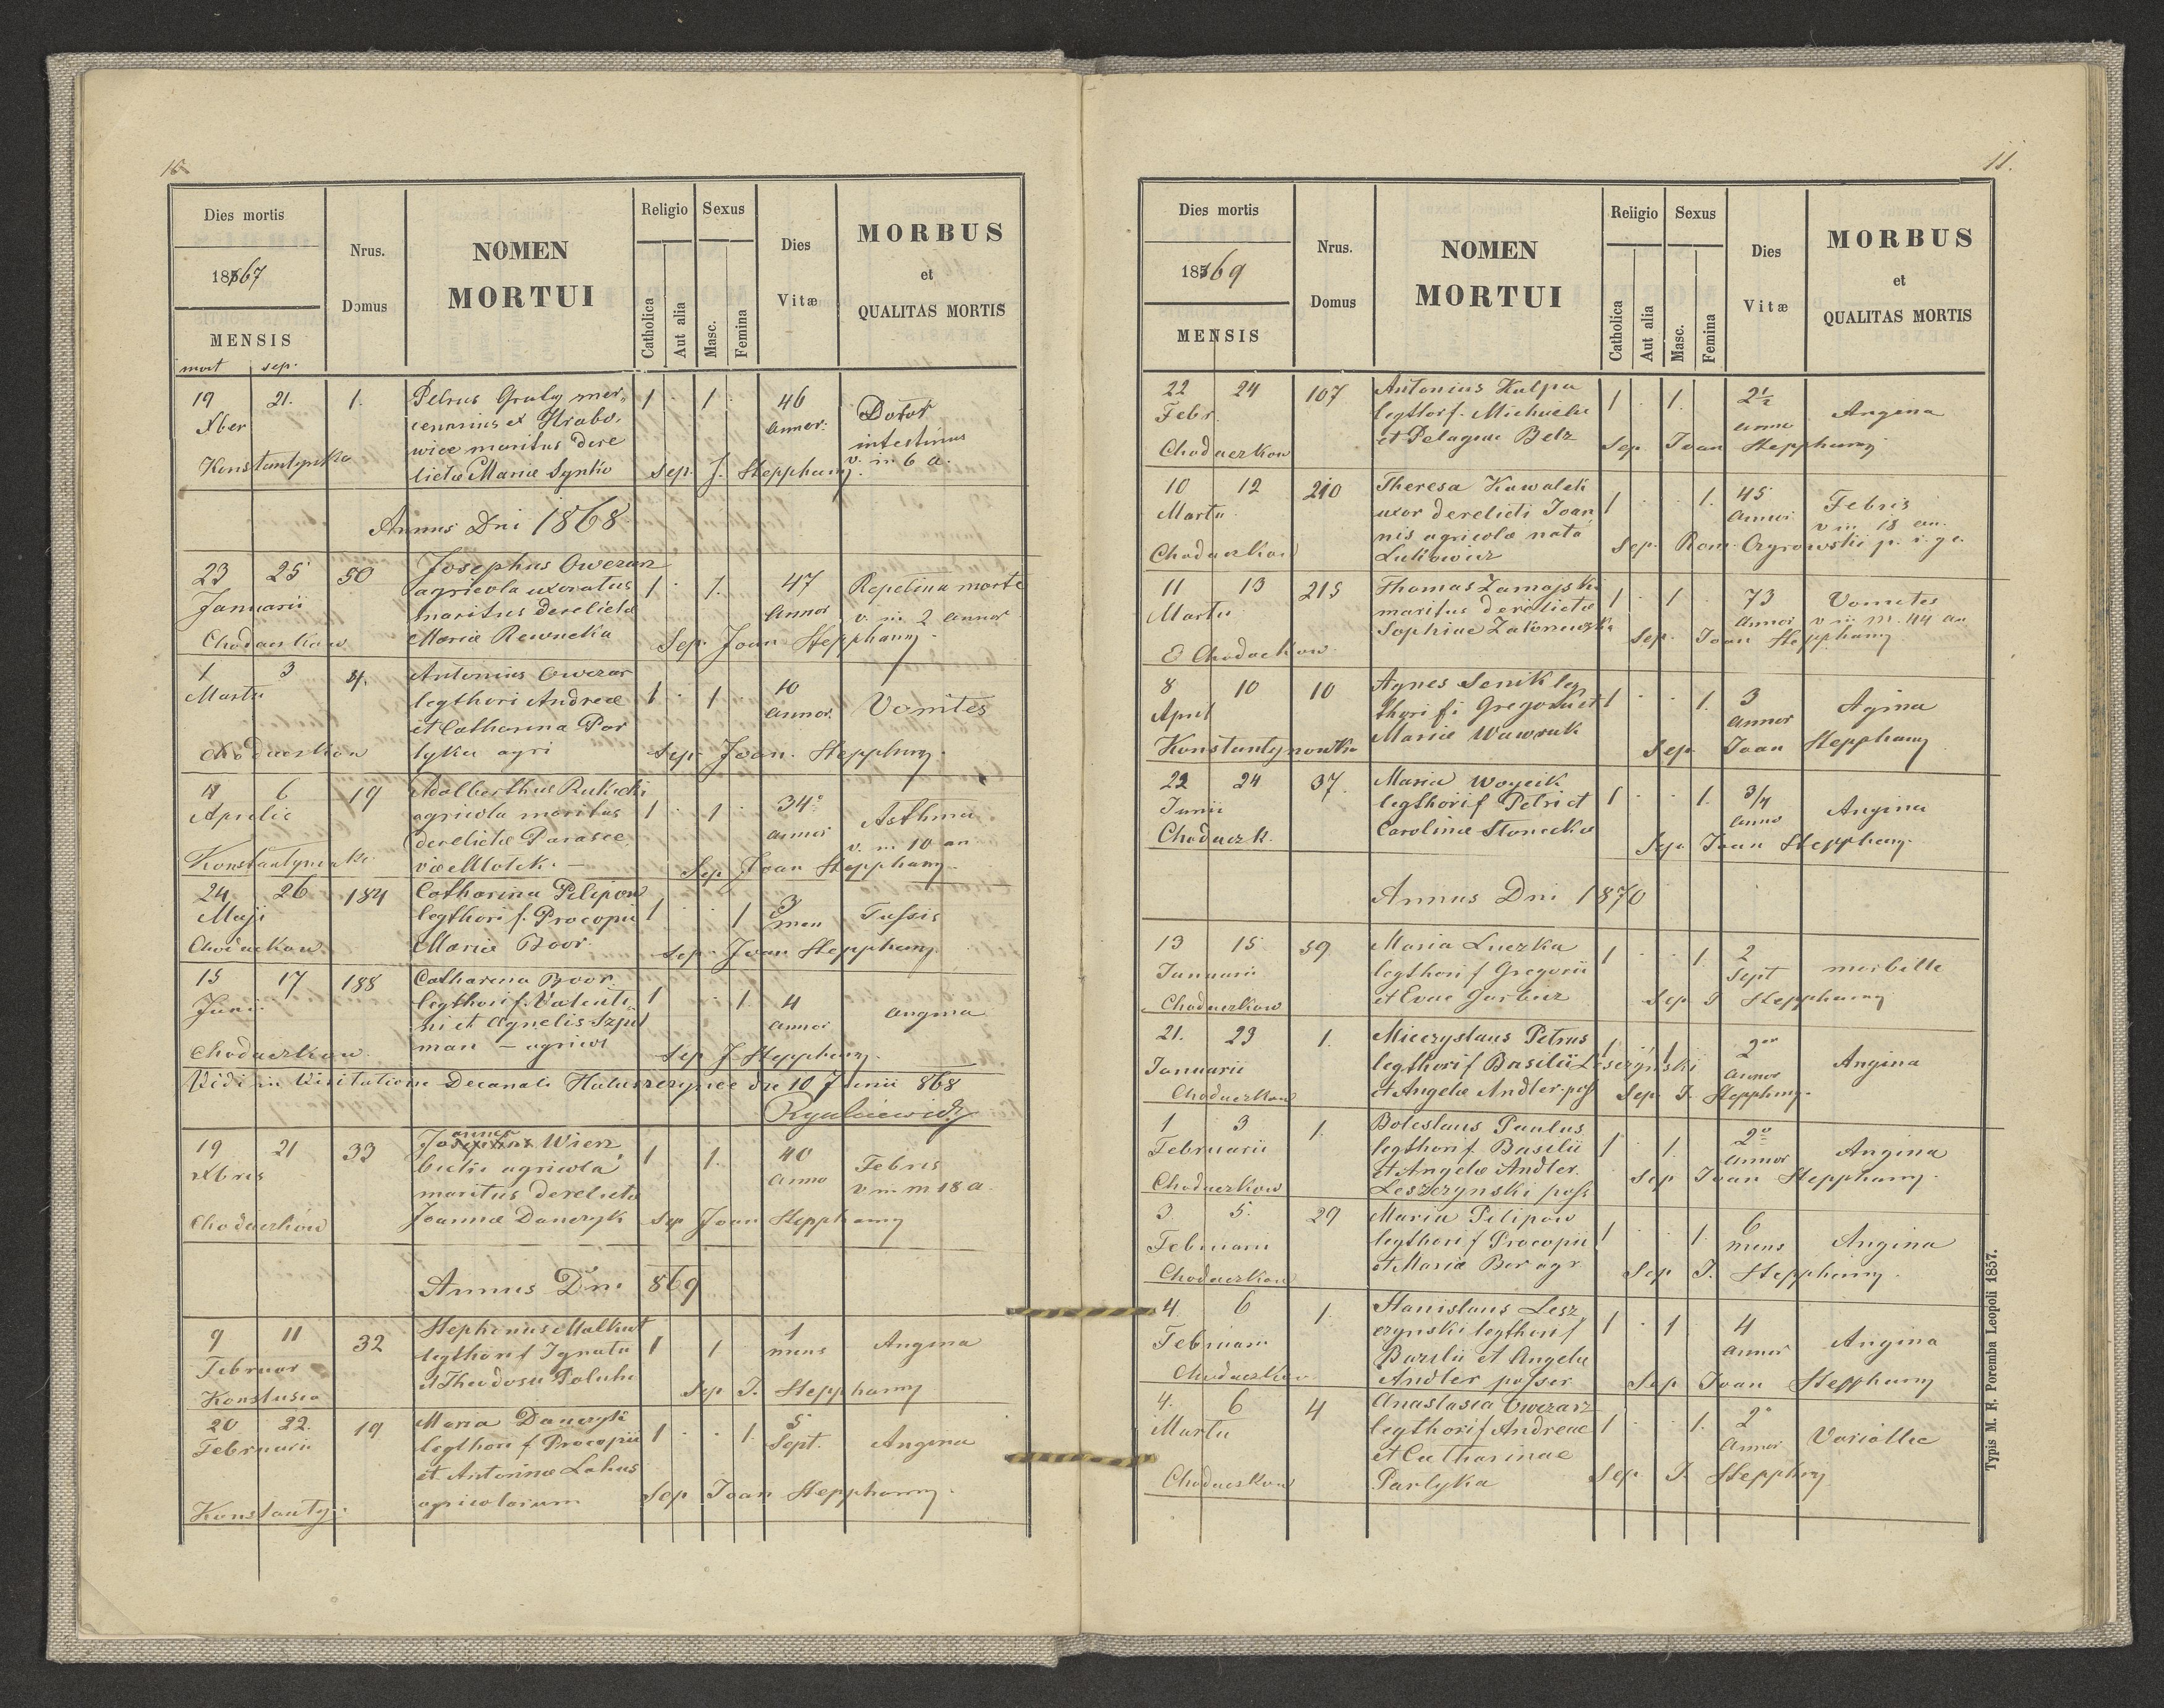 Dies mortis
1867
MENSIS
mort sep.
Nrus.
Domus
NOMEN
MORTUI
Religio
Catholica
Aut alia
Sexus
Masc.
Femina
Dies
Vitæ
MORBUS
et
QUALITAS MORTIS
19 21. 1. Petrus mer,
1 1 46 Dolor
Xber cennarius ex Hrabo,
Annor: intestinus
wice maritus dere
v. in 6 a.
lictæ Mariæ Synko
Sep. J. Stepphany.
Annus Dni 1868
23 25 50 Josephus Owczarz
Januarii agricola uxoratus 1 1. 47 Repetina morte
maritus derelictæ Annor v. in 2 annor
Chodaczkow Mariæ Rewneka Sep. Joan Stepphany.
1 3 Antonius Owczar
Martii legthori Andreæ 1 1 10 Vomites
et Catharina Por annor.
Chodaczkow lyka agri Sep. Joan. Stepphany.
6 19 Adalberthus
Aprilis agricola maritus 1 1 34 Asthma
derelictæ Parasce annor v. in 10 an
viæ Motek. — Sep Joan Stepphany.
24 26 184 Catharina Pilipow
Maji legthori f. Procopii 1 1 3 Tussis
men
Chodaczkow Mariæ Boor. Sep. Joan Stepphany.
15 17 188 Catharina Boor.
Juni legthori f. Valenti 1 1. 4 angina
ni et Agnelis Szpil annor
Chodaczkow. man — agricol Sep J. Stepphany.
Vidi in Visitatione Decanali die 10 Junii 868
19 21 33 Joannes Wierz,
Xbris bicki agricola 1 1. 40 Febris
anno v in m 18 a.
maritus derelictæ
Chodaczkow Joannæ Danczyk Sep Joan Stepphany
Annus Dni 869
9 11 32 Stephanus Malkut
Februar legthori f Ignatii 1 1 1 mens Angina
Konstusca et Theodosii Sep J. Stepphany
20 22. 19 Maria Danczyk
Februarii legthori f Procopii 1 1. 5 Sept. Angina
et Antoninæ Lahus
Konstanty. agricolarum Sep Joan Stepphany.
11.
Dies mortis
1869
MENSIS
Nrus.
Domus
NOMEN
MORTUI
Religio
Catholica
Aut alia
Sexus
Masc.
Femina
Dies
Vitæ
MORBUS
et
QUALITAS MORTIS
22 24 107 Antonius Kulpa
Febr. legthori f. Michaelis 1 1. 2½ anno Angina
et Pelagiæ Betz
Chodaczkow Sep Joan Stepphany.
10 12 210 Theresa Kawalek
Martii uxor derelicti Joan, 1 1. 45 Febris
nis agricola nata annor v in 18 an.
Chodaczkow Lukowicz Sep. Rom. Ozyrowski p. r. g.
11 13 215 Thomas Zamajski
Martii maritus derelictæ 1 1 73 Vomites
Sophiae annor v in m. 44 an
Chodackow. Sep. Joan Stepphany
8 10 10 Agnes Senik leg
April thori fi Gregorii et 1 1. 3 Agina
Mariæ Wawruk annor
Konstantynowka Sep. Joan Stepphany
22 24 37. Maria Woycik
Junii legthori f Petri et 1 1. 3/4 Angina
Chodaczk. Carolinæ anno
Sep. Joan Stepphany.
Annus Dni 1870
13 15 59 Maria Luczka
Januarii legthori f Gregorii 1 1 2 Sept morbilli
Chodaczkow et Evae Garbuz Sep J Stepphany
21. 23 1. Mieczyslaus Petrus
Januarii legthori f Basilii Leszczynski 1 1 2 annor Angina
Chodaczkow et Angelæ Andler poss Sep J. Stepphany.
1 3 1. Boleslaus Paulus
Februarii legthori f. Basilii 1 1. 2 annor Angina
et Angelæ Andler.
Chodaczkow Leszczynski poss Sep Joan Stepphany.
3 5. 29 Maria Pilipow
Februarii legthori f Procopii 1 1. 6 mens Angina
Chodaczkow et Mariæ Bor agr. Sep J. Stepphany.
4. 6 1. Stanislaus Lesz
Februarii czynski legthori f 1 1 4 annor Angina
Bazilii et Angelæ
Chodaczkow Andler posser Sep Joan Stepphany
4. 6 4 Anastasia Owczarz
Martii legthori f Andreae 1 1. 2 annor Variollæ
et Catharinae
Chodaczkow Parlyka Sep J. Stepphy
Typis M. F. Poremba Leopoli 1857.